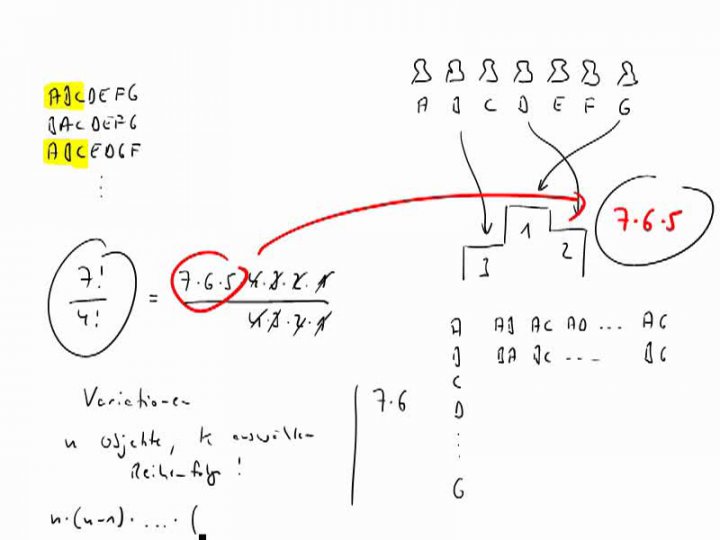 ABCDEFG
BACDEFG
ABCEDGF
⋮
A B C D E F G
1
2
3
7·6·5
7!
4!
=
7·6·5·4·3·2·1
4·3·2·1
A AB AC AD ... AG
B BA BC ... BG
C
D
⋮
G
7·6
Variationen
n Objekte, k auswählen
Reihenfolge!
n·(n-1)·....·(